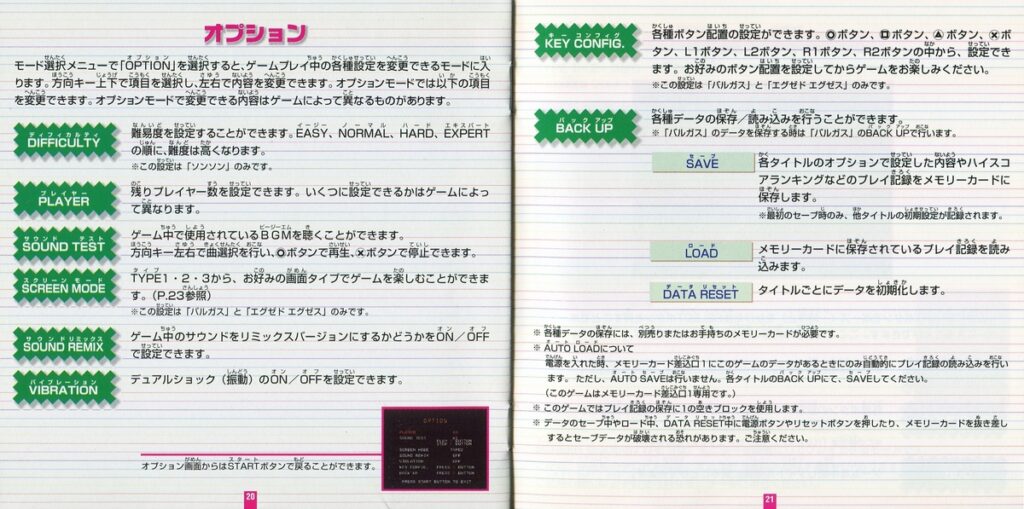 オプション
モード選択メニューで「OPTION」を選択すると、ゲームプレイ中の各種設定を変更できるモードに入
ります。方向キー上下で項目を選択し、左右で内容を変更できます。オプションモードでは以下の項目
を変更できます。オプションモードで変更できる内容はゲームによって異なるものがあります。
DIFFICULTY
難易度を設定することができます。EASY、NORMAL、HARD、EXPERT
の順に、難度は高くなります。
※この設定は「ソンソン」のみです。
PLAYER
残りプレイヤー数を設定できます。いくつに設定できるかはゲームによっ
て異なります。
SOUND TEST
ゲーム中で使用されているBGMを聴くことができます。
方向キー左右で曲選択を行い、○ボタンで再生、×ボタンで停止できます。
SCREEN MODE
TYPE1・2・3から、お好みの画面タイプでゲームを楽しむことができま
す。(P.23参照)
※この設定は「バルガス」と「エグゼド エグゼス」のみです。
SOUND REMIX
ゲーム中のサウンドをリミックスバージョンにするかどうかをON/OFF
で設定できます。
VIBRATION
デュアルショック(振動)のON/OFFを設定できます。
オプション画面からはSTARTボタンで戻ることができます。
OPTION
PLAYER
SOUND TEST
SCREEN MODE
SOUND REMIX OFF
VIBRATION OFF
KEY CONFIG. PRESS BUTTON
BACK UP PRESS BUTTON
PRESS START BUTTON TO EXIT
20
KEY CONFIG.
各種ボタン配置の設定ができます。○ボタン、□ボタン、△ボタン、×ボ
タン、L1ボタン、L2ボタン、R1ボタン、R2ボタンの中から、設定でき
ます。お好みのボタン配置を設定してからゲームをお楽しみください。
※この設定は「バルガス」と「エグゼド エグゼス」のみです。
BACK UP
各種データの保存/読み込みを行うことができます。
※「バルガス」のデータを保存する時は「バルガス」のBACK UPで行います。
SAVE
各タイトルのオプションで設定した内容やハイスコ
アランキングなどのプレイ記録をメモリーカードに
保存します。
※最初のセーブ時のみ、他タイトルの初期設定が記録されます。
LOAD
メモリーカードに保存されているプレイ記録を読み
込みます。
DATA RESET
タイトルごとにデータを初期化します。
※ 各種データの保存には、別売りまたはお手持ちのメモリーカードが必要です。
※ AUTO LOADについて
電源を入れた時、メモリーカード差込口1にこのゲームのデータがあるときにのみ自動的にプレイ記録の読み込みを行い
ます。ただし、AUTO SAVEは行いません。各タイトルのBACK UPにて、SAVEしてください。
(このゲームはメモリーカード差込口1専用です。)
※ このゲームではプレイ記録の保存に1の空きブロックを使用します。
※ データのセーブ中やロード中、DATA RESET中に電源ボタンやリセットボタンを押したり、メモリーカードを抜き差し
するとセーブデータが破壊される恐れがあります。ご注意ください。
21